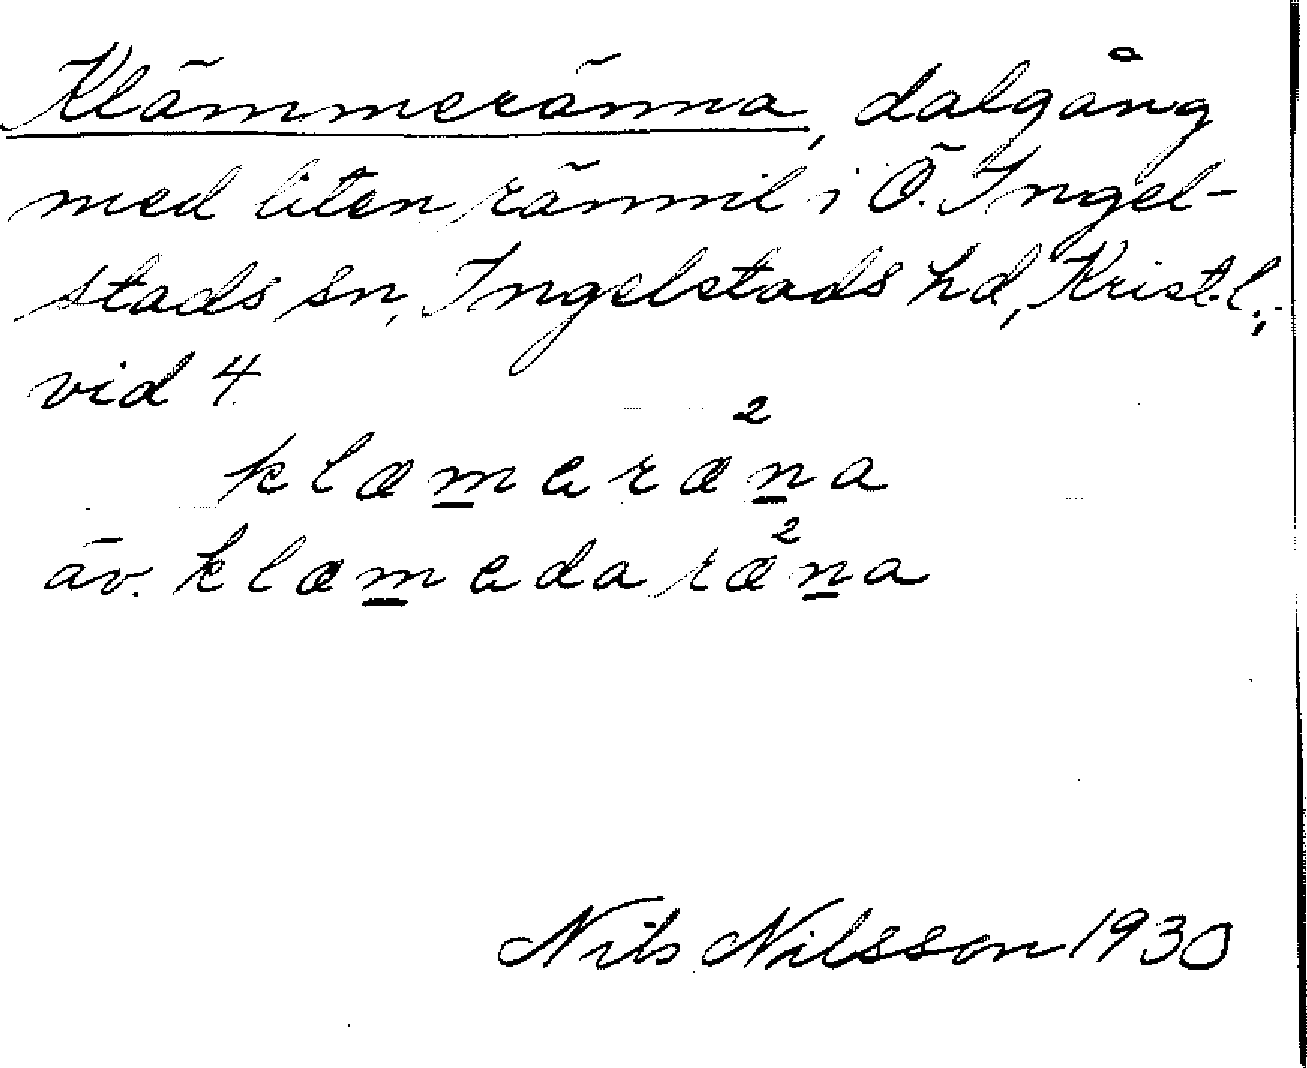 Klämmeränna, dalgång
med liten rännil i Ö. Ingel-
stads sn, Ingelstads hd, Krist.l.,
vid 4
klæmeræ²na
äv. klæmedaræ²na
Nils Nilsson 1930